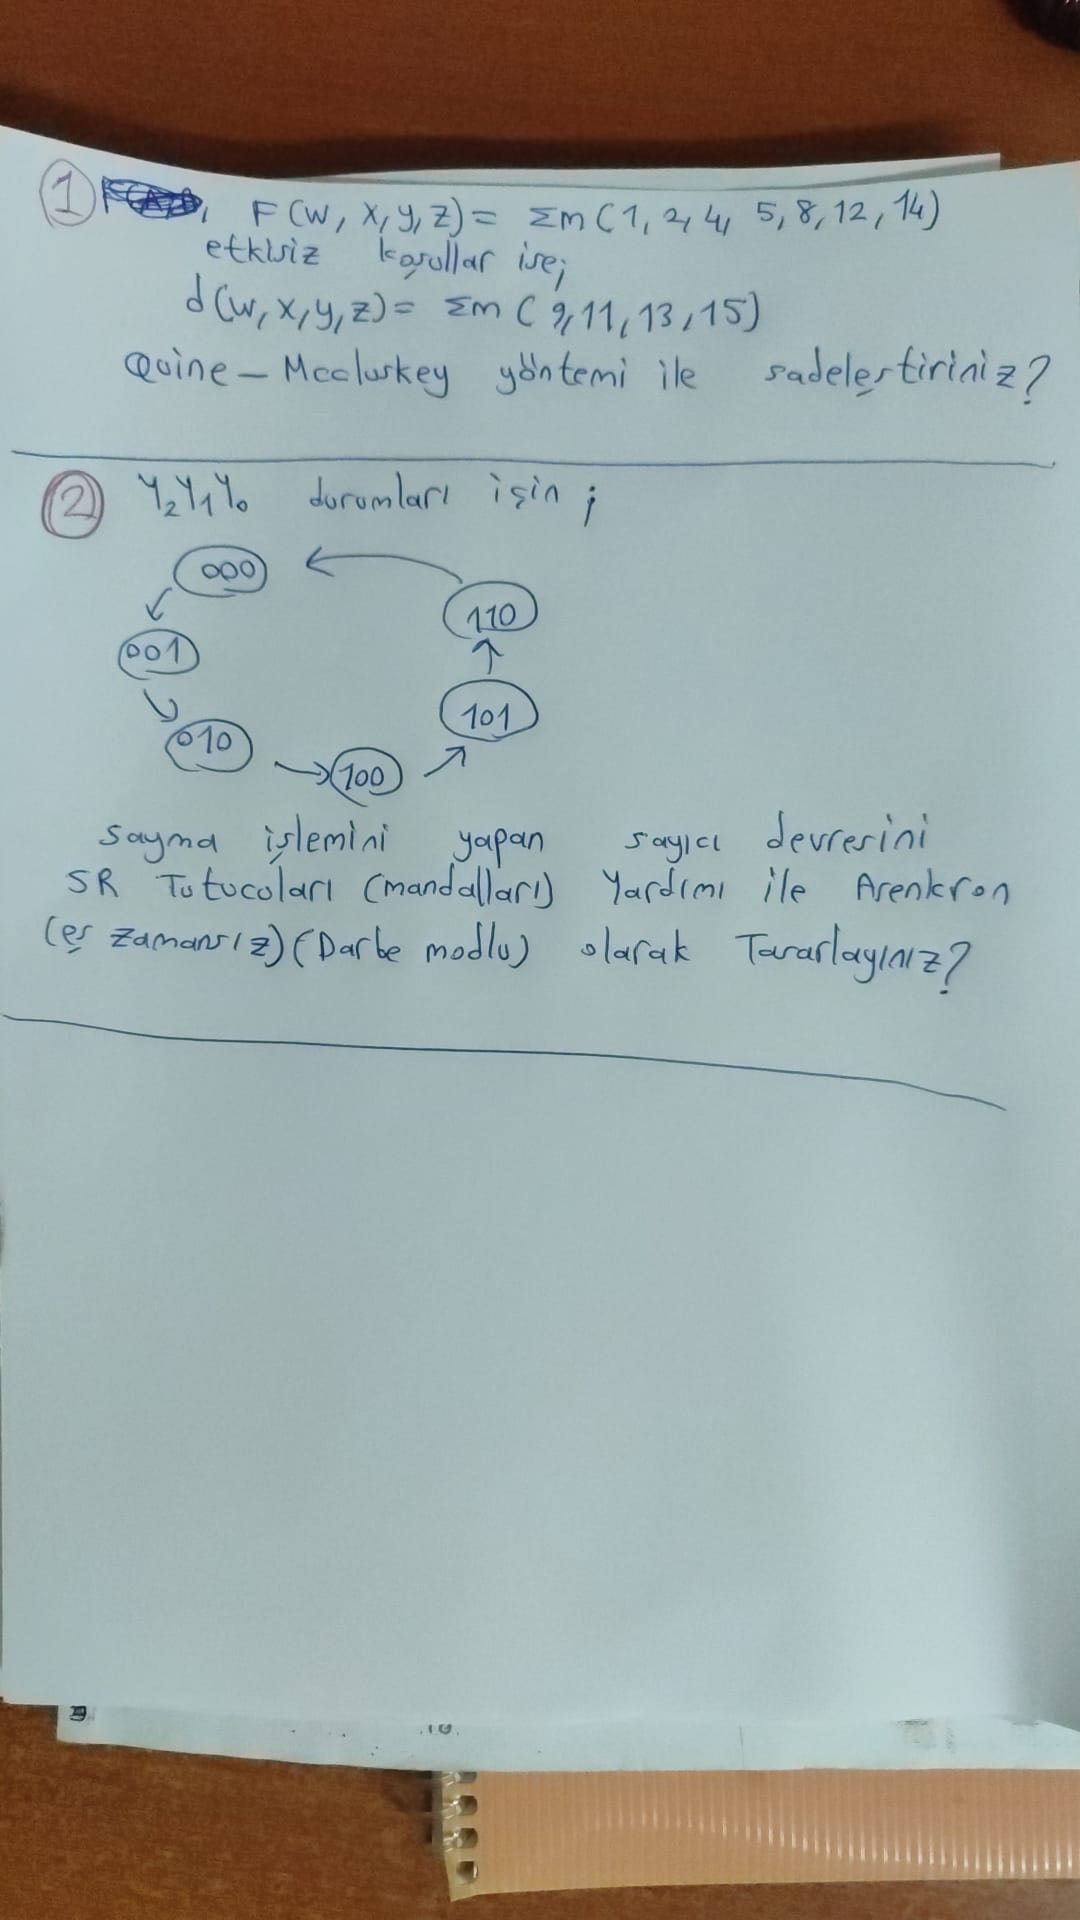 1 F(W, X, Y, Z) = Σm(1, 2, 4, 5, 8, 12, 14)
etkisiz koşullar ise;
d(w, x, y, z) = Σm(9, 11, 13, 15)
Quine - Mccluskey yöntemi ile sadeleştiriniz?
2 Y₂Y₁Y₀ durumları için ;
000
110
001
101
010
100
Sayma işlemini yapan sayıcı devresini
SR Tutucuları (mandalları) Yardımı ile Asenkron
(eş zamansız) (Darbe modlu) olarak Tasarlayınız?